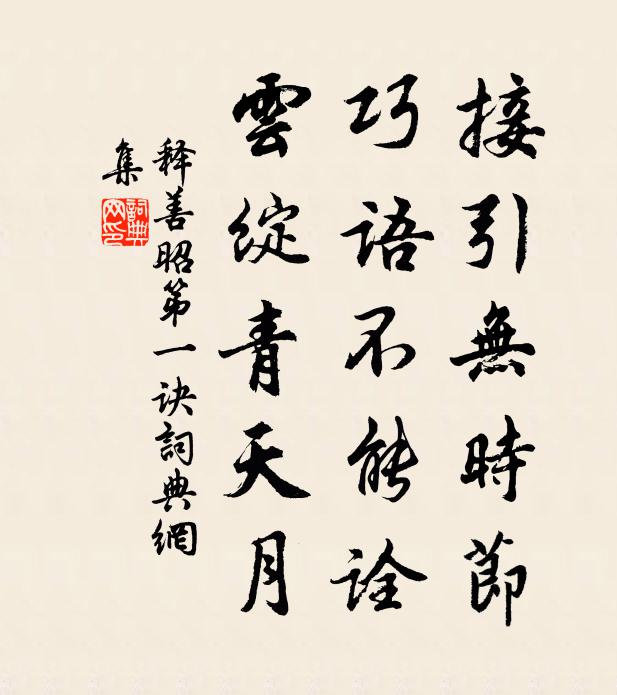 接引無時節
巧語不能詮
雲綻青天月
释善昭第一诀詞典網
集
詞典
网印